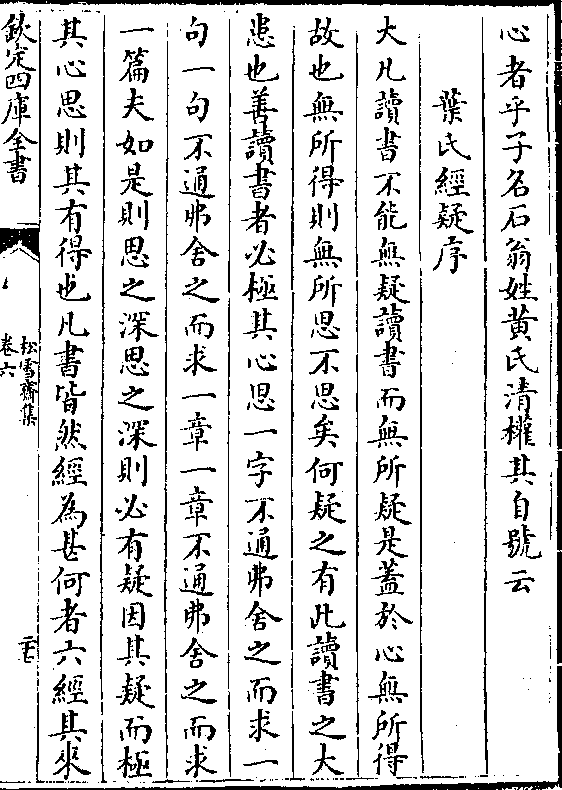 心者乎子名石翁姓黄氏清權其自號云
葉氏經疑序
大凡讀書不能無疑讀書而無所疑是蓋於心無所得
故也無所得則無所思不思矣何疑之有此讀書之大
患也善讀書者必極其心思一字不通弗舍之而求一
句一句不通弗舍之而求一章一章不通弗舍之而求
一篇夫如是則思之深思之深則必有疑因其疑而極
其心思則其有得也凡書皆然經為甚何者六經其來
欽定四庫全書
松雪齋集
卷六